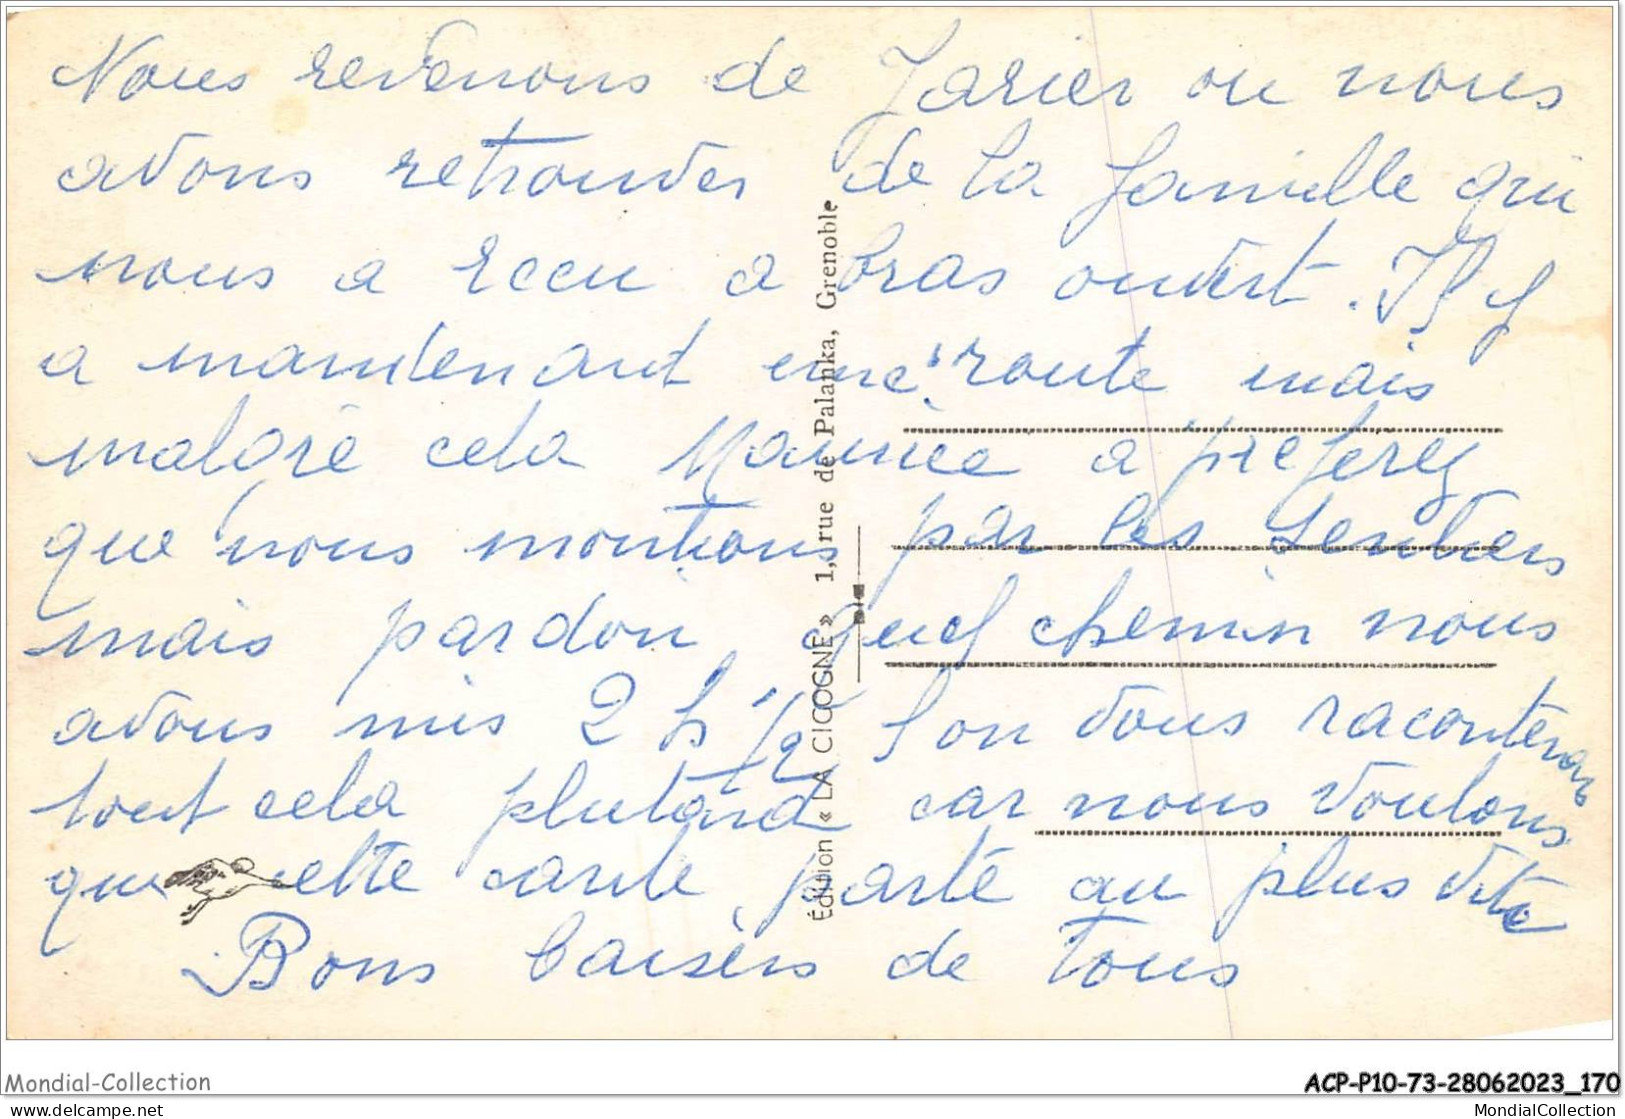 Nous revenons de Jarier ou nous
avons retrouver de la famille qui
nous a recu a bras ouvert. Il y
a maintenant une route mais
malgré cela Maurice a preferez
que nous montions par les sentiers
mais pardon quel chemin nous
avons mis 2 h 1/2 on vous raconteras
tout cela plutard car nous voulons
que cette carte parte au plus vite
Bons baisers de Tous
Édition « LA CICOGNE » 1, rue de Palanka, Grenoble
Mondial-Collection
ACP-P10-73-28062023_170
www.delcampe.net
MondialCollection